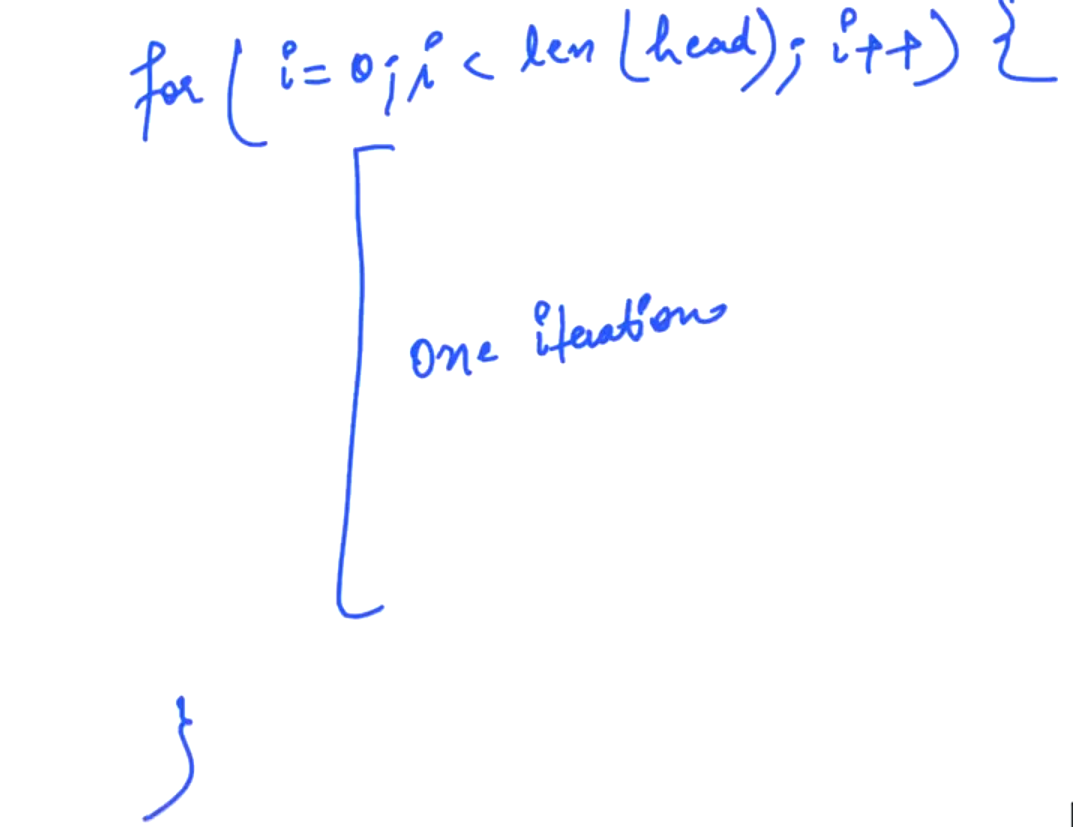 for ( i = 0; i < len (head); i++) {
one iteration
}